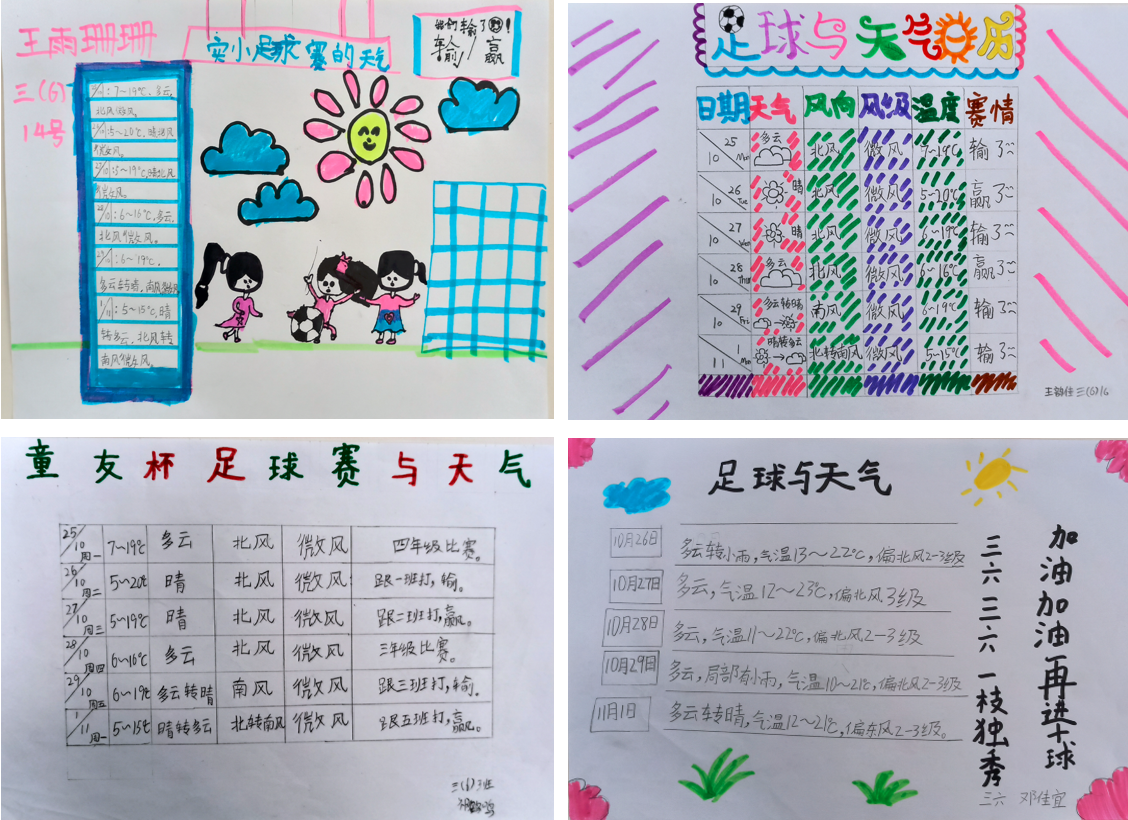 王雨珊珊
三(6)
14号
实小足球赛的天气
如何输了!
输/赢
25/10:7~19℃,多云,
北风微风。
26/10:5~20℃,晴北风
微风。
27/10:5~19℃,晴北风
微风。
28/10:6~16℃,多云,
北风微风。
29/10:6~19℃,
多云转晴,南风微风
1/11:5~15℃,晴
转多云,北风转
南风微风。
足球与天气日历
日期 天气 风向 风级 温度 赛情
25/10 Mon 多云 北风 微风 7~19℃ 输了
26/10 Tue 晴 北风 微风 5~20℃ 赢了
27/10 Wen 晴 北风 微风 6~19℃ 输了
28/10 Thu 多云 北风 微风 6~16℃ 赢了
29/10 Fri 多云转晴 南风 微风 6~19℃ 输了
1/11 Mon 晴转多云 北转南风 微风 5~15℃ 输了
三(6)16
童友杯足球赛与天气
25/10 周一 7~19℃ 多云 北风 微风 四年级比赛。
26/10 周二 5~20℃ 晴 北风 微风 跟一班打,输。
27/10 周三 5~19℃ 晴 北风 微风 跟二班打,赢。
28/10 周四 6~16℃ 多云 北风 微风 三年级比赛。
29/10 周五 6~19℃ 多云转晴 南风 微风 跟三班打,输。
1/11 周一 5~15℃ 晴转多云 北转南风 微风 跟五班打,赢。
三(6)班
足球与天气
10月26日 多云转小雨,气温13~22℃,偏北风2-3级
10月27日 多云,气温12~23℃,偏北风3级
10月28日 多云,气温11~22℃,偏北风2-3级
10月29日 多云,局部有小雨,气温10~21℃,偏北风2-3级
11月1日 多云转晴,气温12~21℃,偏东风2-3级。
三六三六一枝独秀
加油加油再进十球
三六 邓佳宜